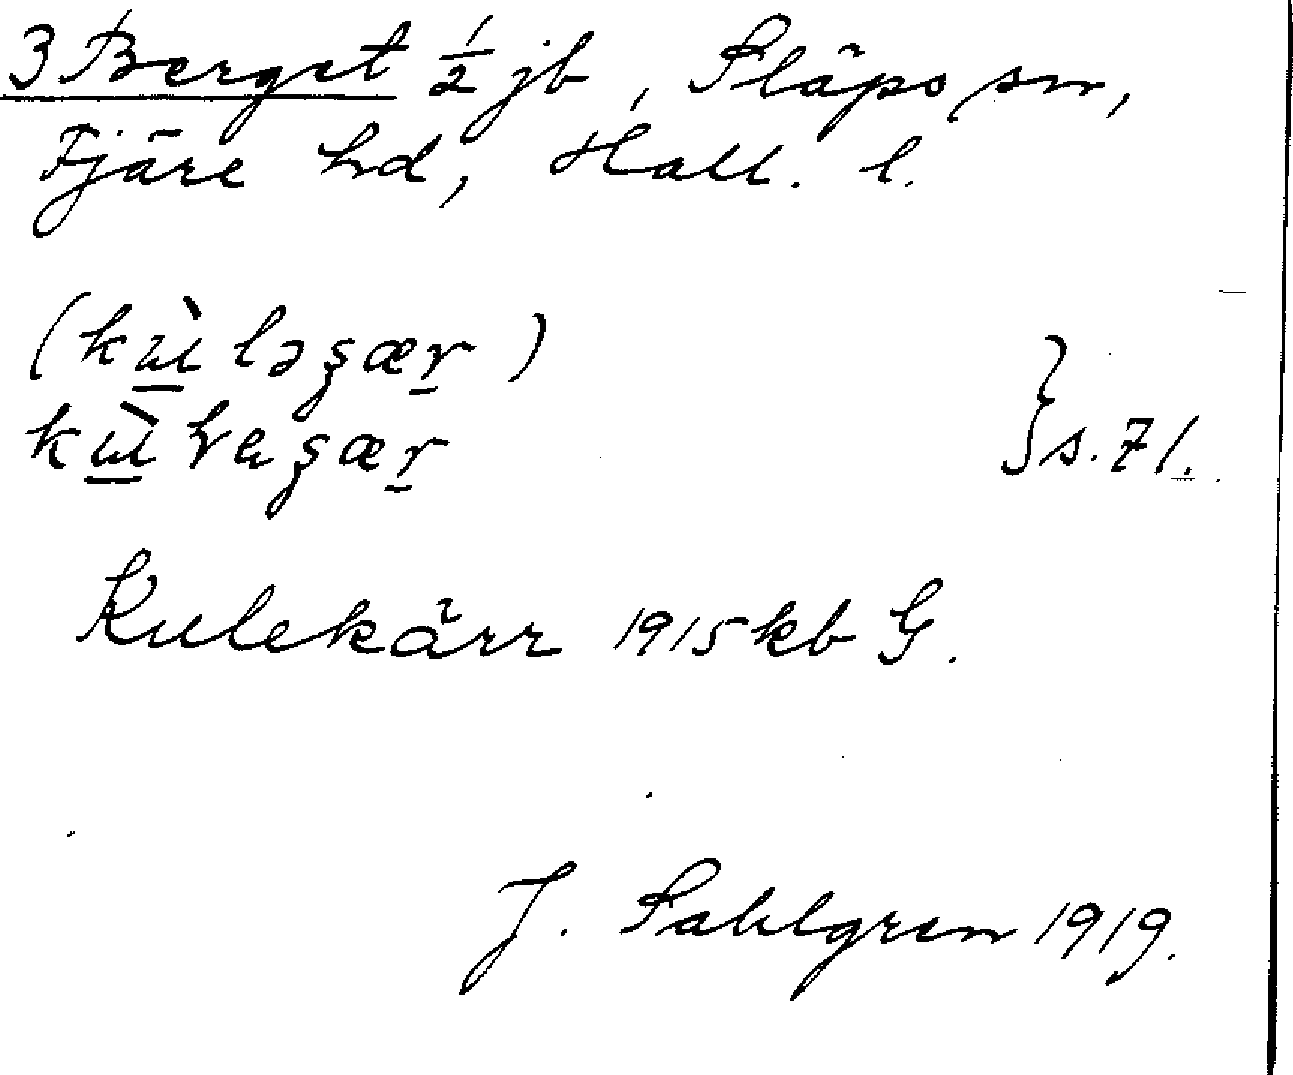 3 Berget 1/2 jb, Släps sn,
Fjäre hd, Hall. l.
(kɯ̲̀ləʂær̲)
} s. 71.
Kulekärr 1915 kb G.
J. Sahlgren 1919.